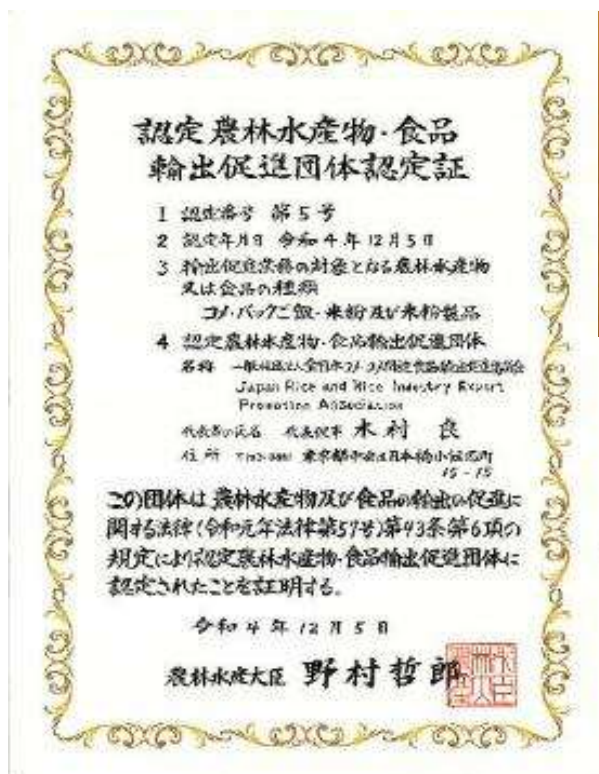 認定農林水産物・食品
輸出促進団体認定証
1 認定番号 第5号
2 認定年月日 令和4年12月5日
3 輸出促進業務の対象となる農林水産物
又は食品の種類
コメ・パックご飯・米粉及び米粉製品
4 認定農林水産物・食品輸出促進団体
名称 一般社団法人全日本コメ・コメ関連食品輸出促進協議会
Japan Rice and Rice Industry Export
Promotion Association
代表者の氏名 代表理事 木村 良
住所 東京都中央区日本橋小伝馬町
15-15
この団体は農林水産物及び食品の輸出の促進に
関する法律(令和元年法律第57号)第43条第6項の
規定により認定農林水産物・食品輸出促進団体に
認定されたことを証明する。
令和4年12月5日
農林水産大臣 野村哲郎